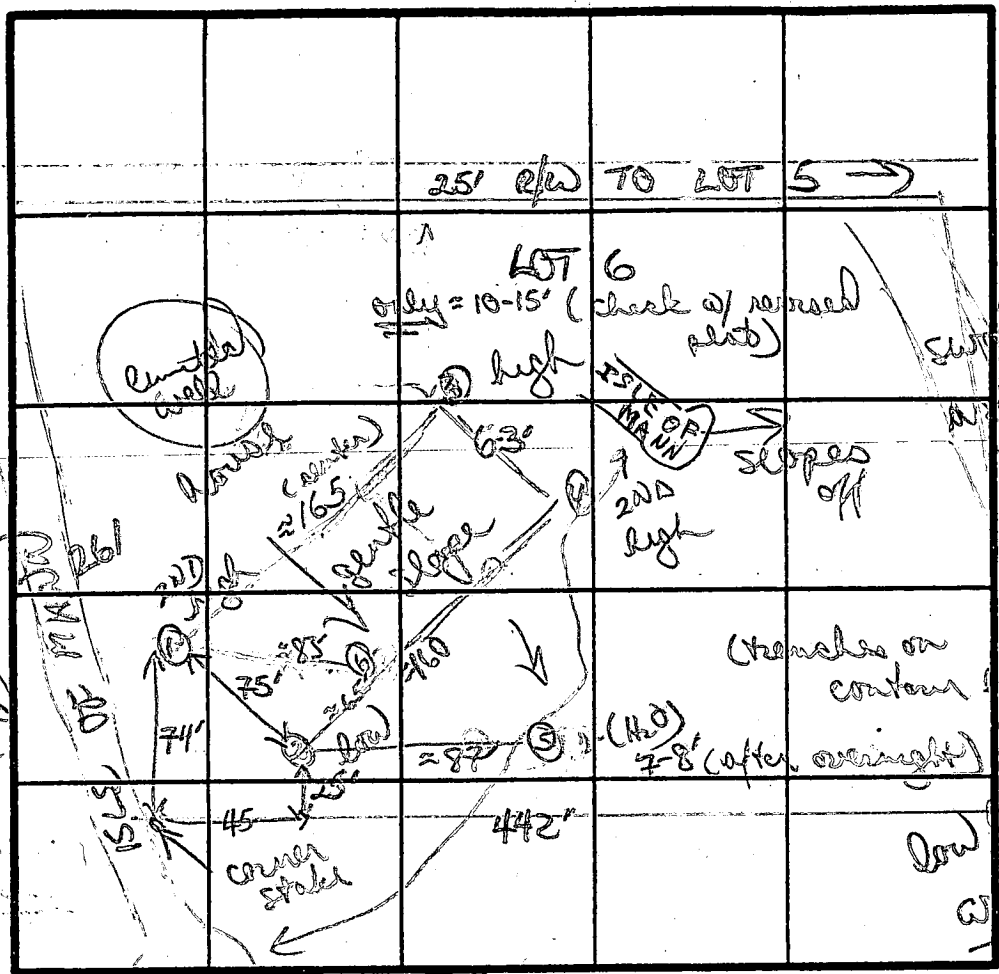 25' R/W TO LOT 5
LOT 6
only = 10-15' (check w/ revised
plat)
high
3
well
house
(center)
≈165
63'
ISLE OF
MANN
slopes
off
2ND
high
gentle
slope
261
2ND
high
1
≈85
6
75'
≈160
74'
2
low
25'
≈87
5
(H2O)
7-8' (after overnight)
(trenches on
contour
45
corner
stake
442'
low
RD
ISLE